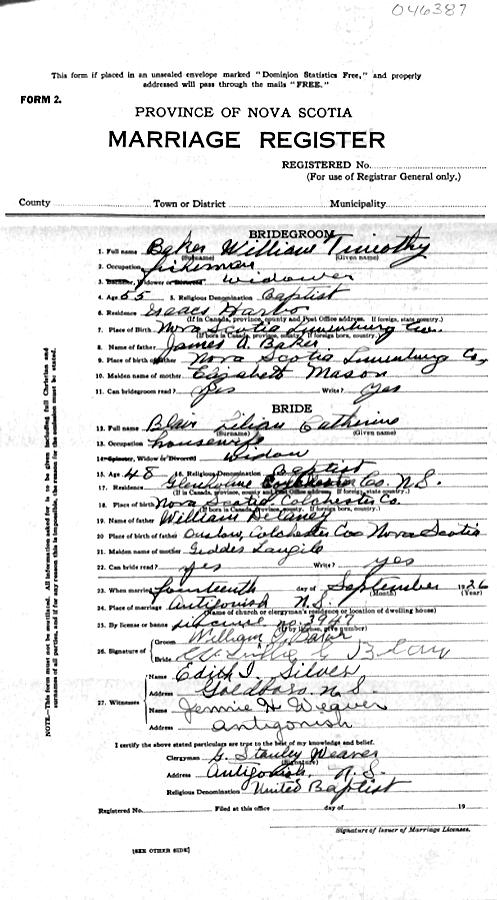 046387
This form if placed in an unsealed envelope marked "Dominion Statistics Free," and properly
addressed will pass through the mails "FREE."
FORM 2.
PROVINCE OF NOVA SCOTIA
MARRIAGE REGISTER
REGISTERED No.
(For use of Registrar General only.)
County Town or District Municipality
BRIDEGROOM
1. Full name Baker William Timothy
(Surname) (Given name)
2. Occupation fisherman
3. Bachelor, Widower or Divorced widower
4. Age 55 5. Religious Denomination Baptist
6. Residence Isaacs Harbor
(If in Canada, province, county and Post Office address. If foreign, state country.)
7. Place of Birth Nova Scotia Lunenburg Co.
(If born in Canada, province, county. If foreign, country.)
8. Name of father James A. Baker
9. Place of birth of father Nova Scotia Lunenburg Co,
10. Maiden name of mother Elizabeth Mason
11. Can bridegroom read? Yes Write? Yes
BRIDE
12. Full name Blair Lilian Catherine
(Surname) (Given name)
13. Occupation housewife
14. Spinster, Widow or Divorced widow
15. Age 48 16. Religious Denomination Baptist
17. Residence Glenholme Colchester Co. N.S.
(If in Canada, province, county and Post Office address. If foreign, state country.)
18. Place of birth Nova Scotia Colchester Co.
(If born in Canada, province, county. If foreign, country.)
19. Name of father William Delaney
20. Place of birth of father Onslow, Colchester Co Nova Scotia
21. Maiden name of mother Langile
22. Can bride read? yes Write? yes
23. When married fourteenth day of September 1926
(Month) (Year)
24. Place of marriage Antigonish N.S.
(Name of church or clergyman's residence or location of dwelling house)
25. By license or banns license no. 3947
(If by license, give number)
26. Signature of Groom William T. Baker
Bride
27. Witnesses Name Edith I. Silver
Address Goldboro N S
Name Jennie H Weaver
Address Antigonish
I certify the above stated particulars are true to the best of my knowledge and belief.
Clergyman G. Stanley Weaver
(Signature)
Address Antigonish, N.S.
Religious Denomination United Baptist
Registered No. Filed at this office day of 19
Signature of Issuer of Marriage Licenses.
[SEE OTHER SIDE]
NOTE—This form must not be mutilated. All information asked for is to be given including full Christian and
surnames of all parties, and if for any reason this is impossible, the reason for the omission must be stated.